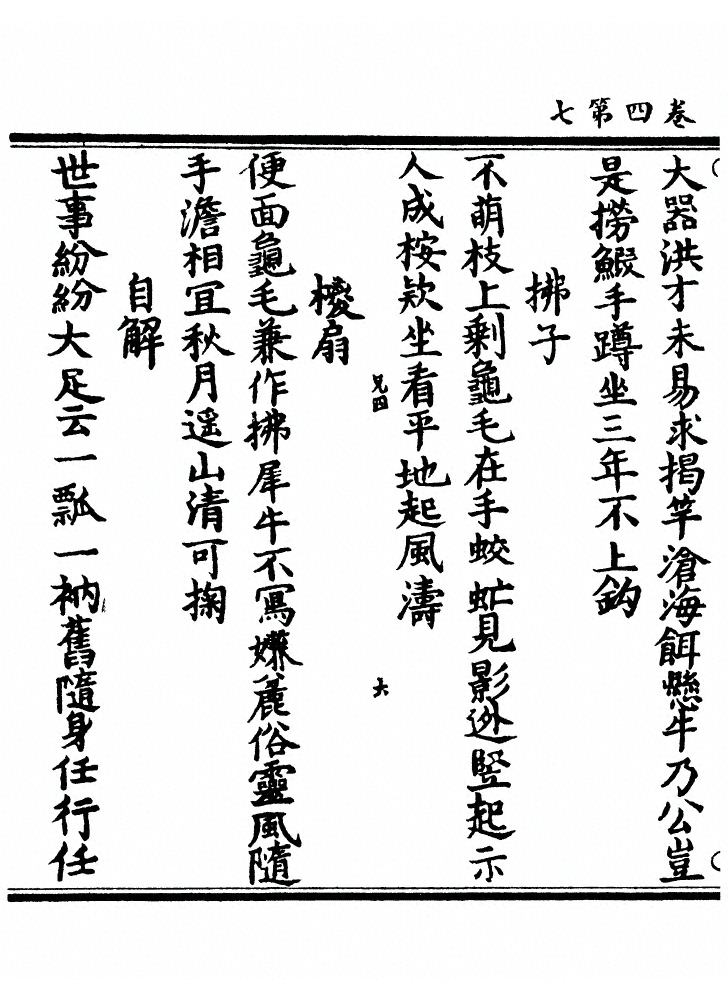 卷四第七
大器洪才未易求揭竿滄海餌懸牛乃公豈
是撈鰕手蹲坐三年不上鈎
拂子
不萌枝上剩龜毛在手蛟虻見影逊竪起示
人成桉欵坐看平地起風濤
兄四
六
椶扇
便面龜毛兼作拂犀牛不寫嫌麄俗靈風隨
手澹相冝秋月遥山清可掬
自解
世事紛紛大足云一瓢一衲舊隨身任行任